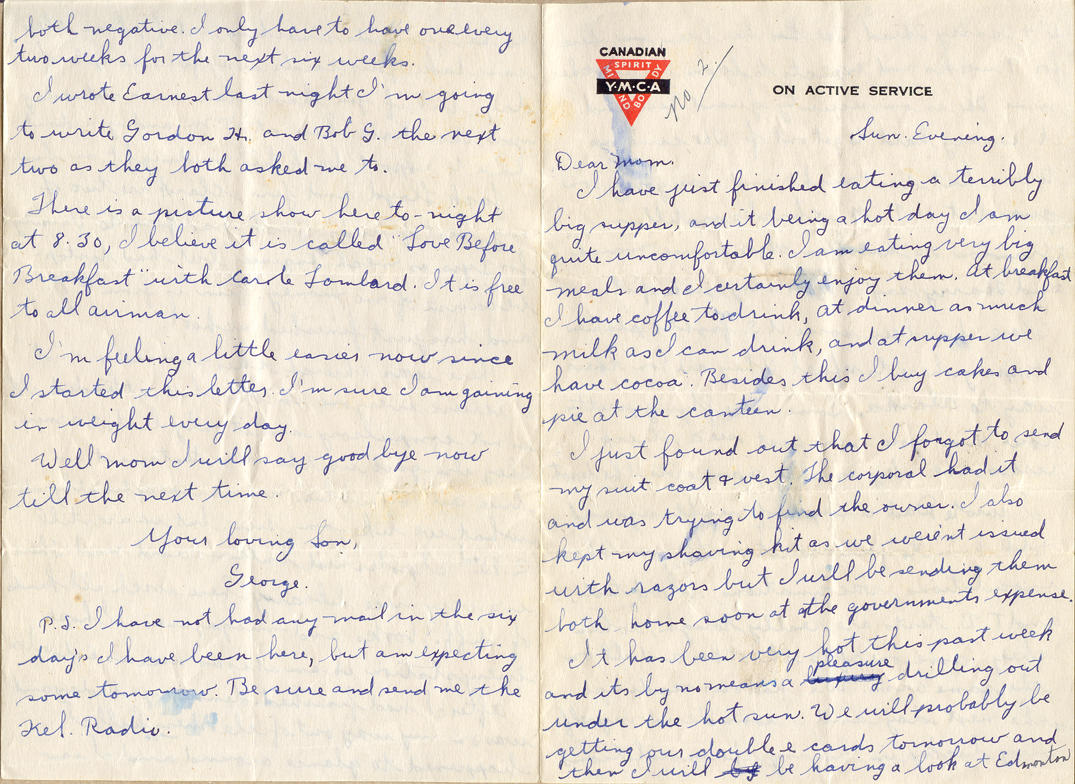 both negative. I only have to have one every
two weeks for the next six weeks.
I wrote Earnest last night I'm going
to write Gordon H. and Bob G. the next
two as they both asked me to.
There is a picture show here to-night
at 8.30, I believe it is called "Love Before
Breakfast" with Carole Lombard. It is free
to all airman.
I'm feeling a little easier now since
I started this letter. I'm sure I am gaining
in weight every day.
Well mom I will say good bye now
till the next time.
Your loving Son,
George.
P.S. I have not had any mail in the six
day's I have been here, but am expecting
some tomorrow. Be sure and send me the
Kel. Radio.
CANADIAN
SPIRIT
MIND BODY
Y·M·C·A
no 2.
ON ACTIVE SERVICE
Sun. Evening.
Dear Mom.
I have just finished eating a terribly
big supper, and it being a hot day I am
quite uncomfortable. I am eating very big
meals and I certainly enjoy them. At breakfast
I have coffee to drink, at dinner as much
milk as I can drink, and at supper we
have cocoa. Besides this I buy cakes and
pie at the canteen.
I just found out that I forgot to send
my suit coat & vest. The corporal had it
and was trying to find the owner. I also
kept my shaving kit as we weren't issued
with razors but I will be sending them
both home soon at the governments expense.
It has been very hot this past week
and its by no means a pleasure drilling out
under the hot sun. We will probably be
getting our double e cards tomorrow and
then I will be having a look at Edmonton